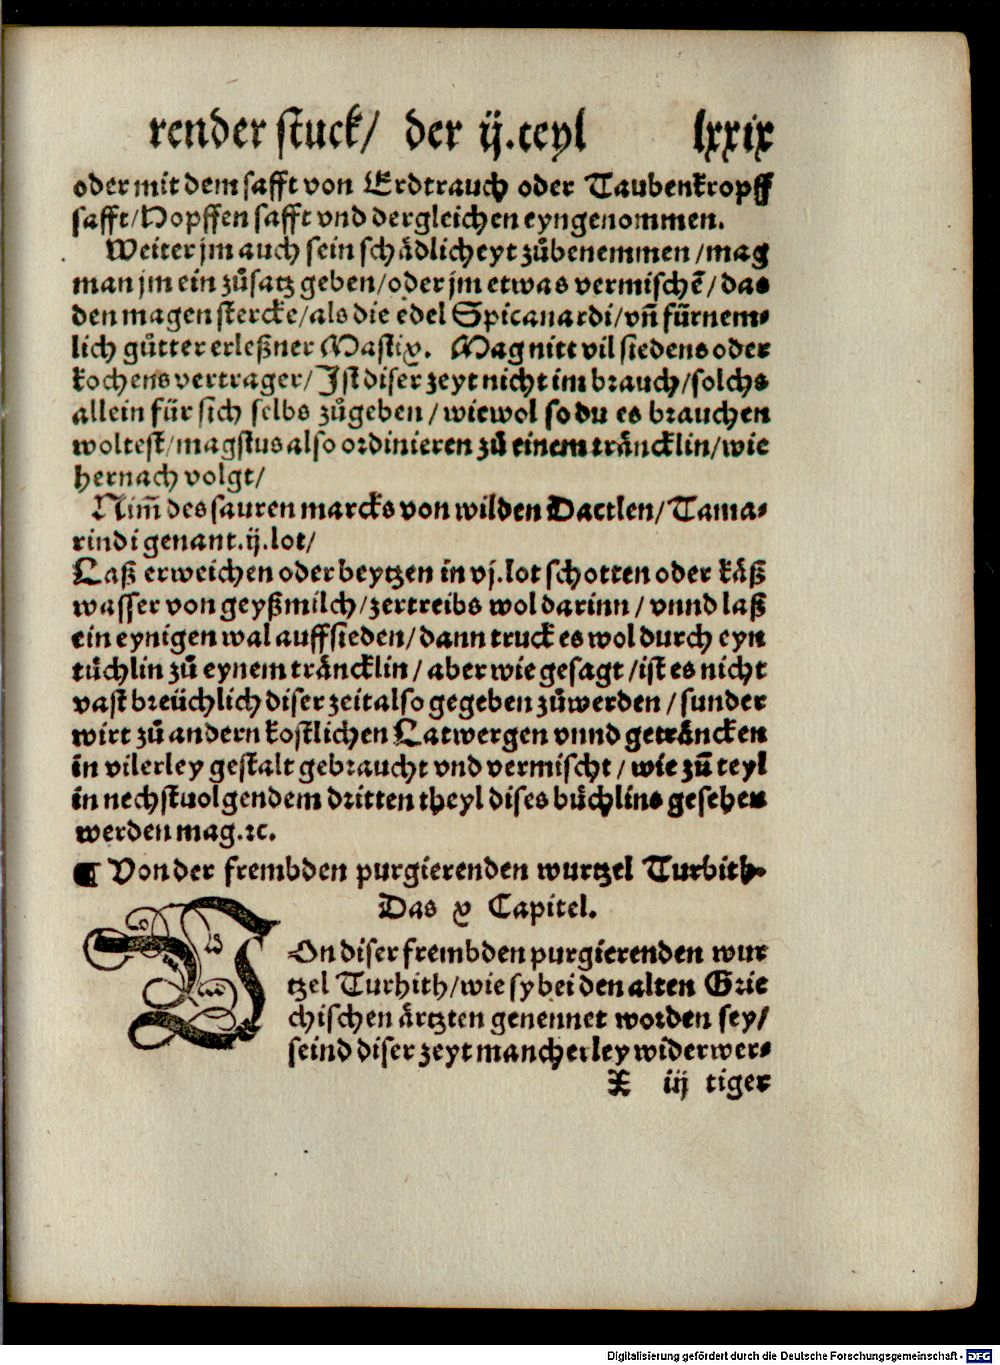 render stuck/ der ij.teyl lxxix
oder mit dem safft von Erdtrauch oder Taubenkropff
safft/Hopffen safft vnd dergleichen eyngenommen.
Weiter jm auch sein schådlicheyt zůbenemmen/mag
man jm ein zůsatz geben/oder jm etwas vermischẽ/das
den magen stercke/als die edel Spicanardi/vñ fürnem-
lich gůtter erleßner Mastix. Mag nitt vil siedens oder
kochens vertrager/Ist diser zeyt nicht im brauch/solchs
allein für sich selbs zůgeben/wiewol so du es brauchen
woltest/magstus also ordinieren zů einem tråncklin/wie
hernach volgt/
Nim̃ des sauren marcks von wilden Dactlen/Tama-
rindi genant.ij.lot/
Laß erweichen oder beytzen in vj.lot schotten oder kåß
wasser von geyßmilch/zertreibs wol darinn/vnnd laß
ein eynigen wal auffsieden/dann truck es wol durch eyn
tüchlin zů eynem tråncklin/aber wie gesagt/ist es nicht
vast breüchlich diser zeit also gegeben zůwerden/sunder
wirt zů andern kostlichen Latwergen vnnd getråncken
in vilerley gestalt gebraucht vnd vermischt/wie zů teyl
in nechstuolgendem dritten theyl dises bůchlins gesehen
werden mag.ꝛc.
¶ Von der frembden purgierenden wurtzel Turbith.
Das x Capitel.
VOn diser frembden purgierenden wur
tzel Turbith/wie sy bei den alten Grie
chischen årtzten genennet worden sey/
seind diser zeyt mancherley widerwer-
X iij tiger
Digitalisierung gefördert durch die Deutsche Forschungsgemeinschaft - DFG